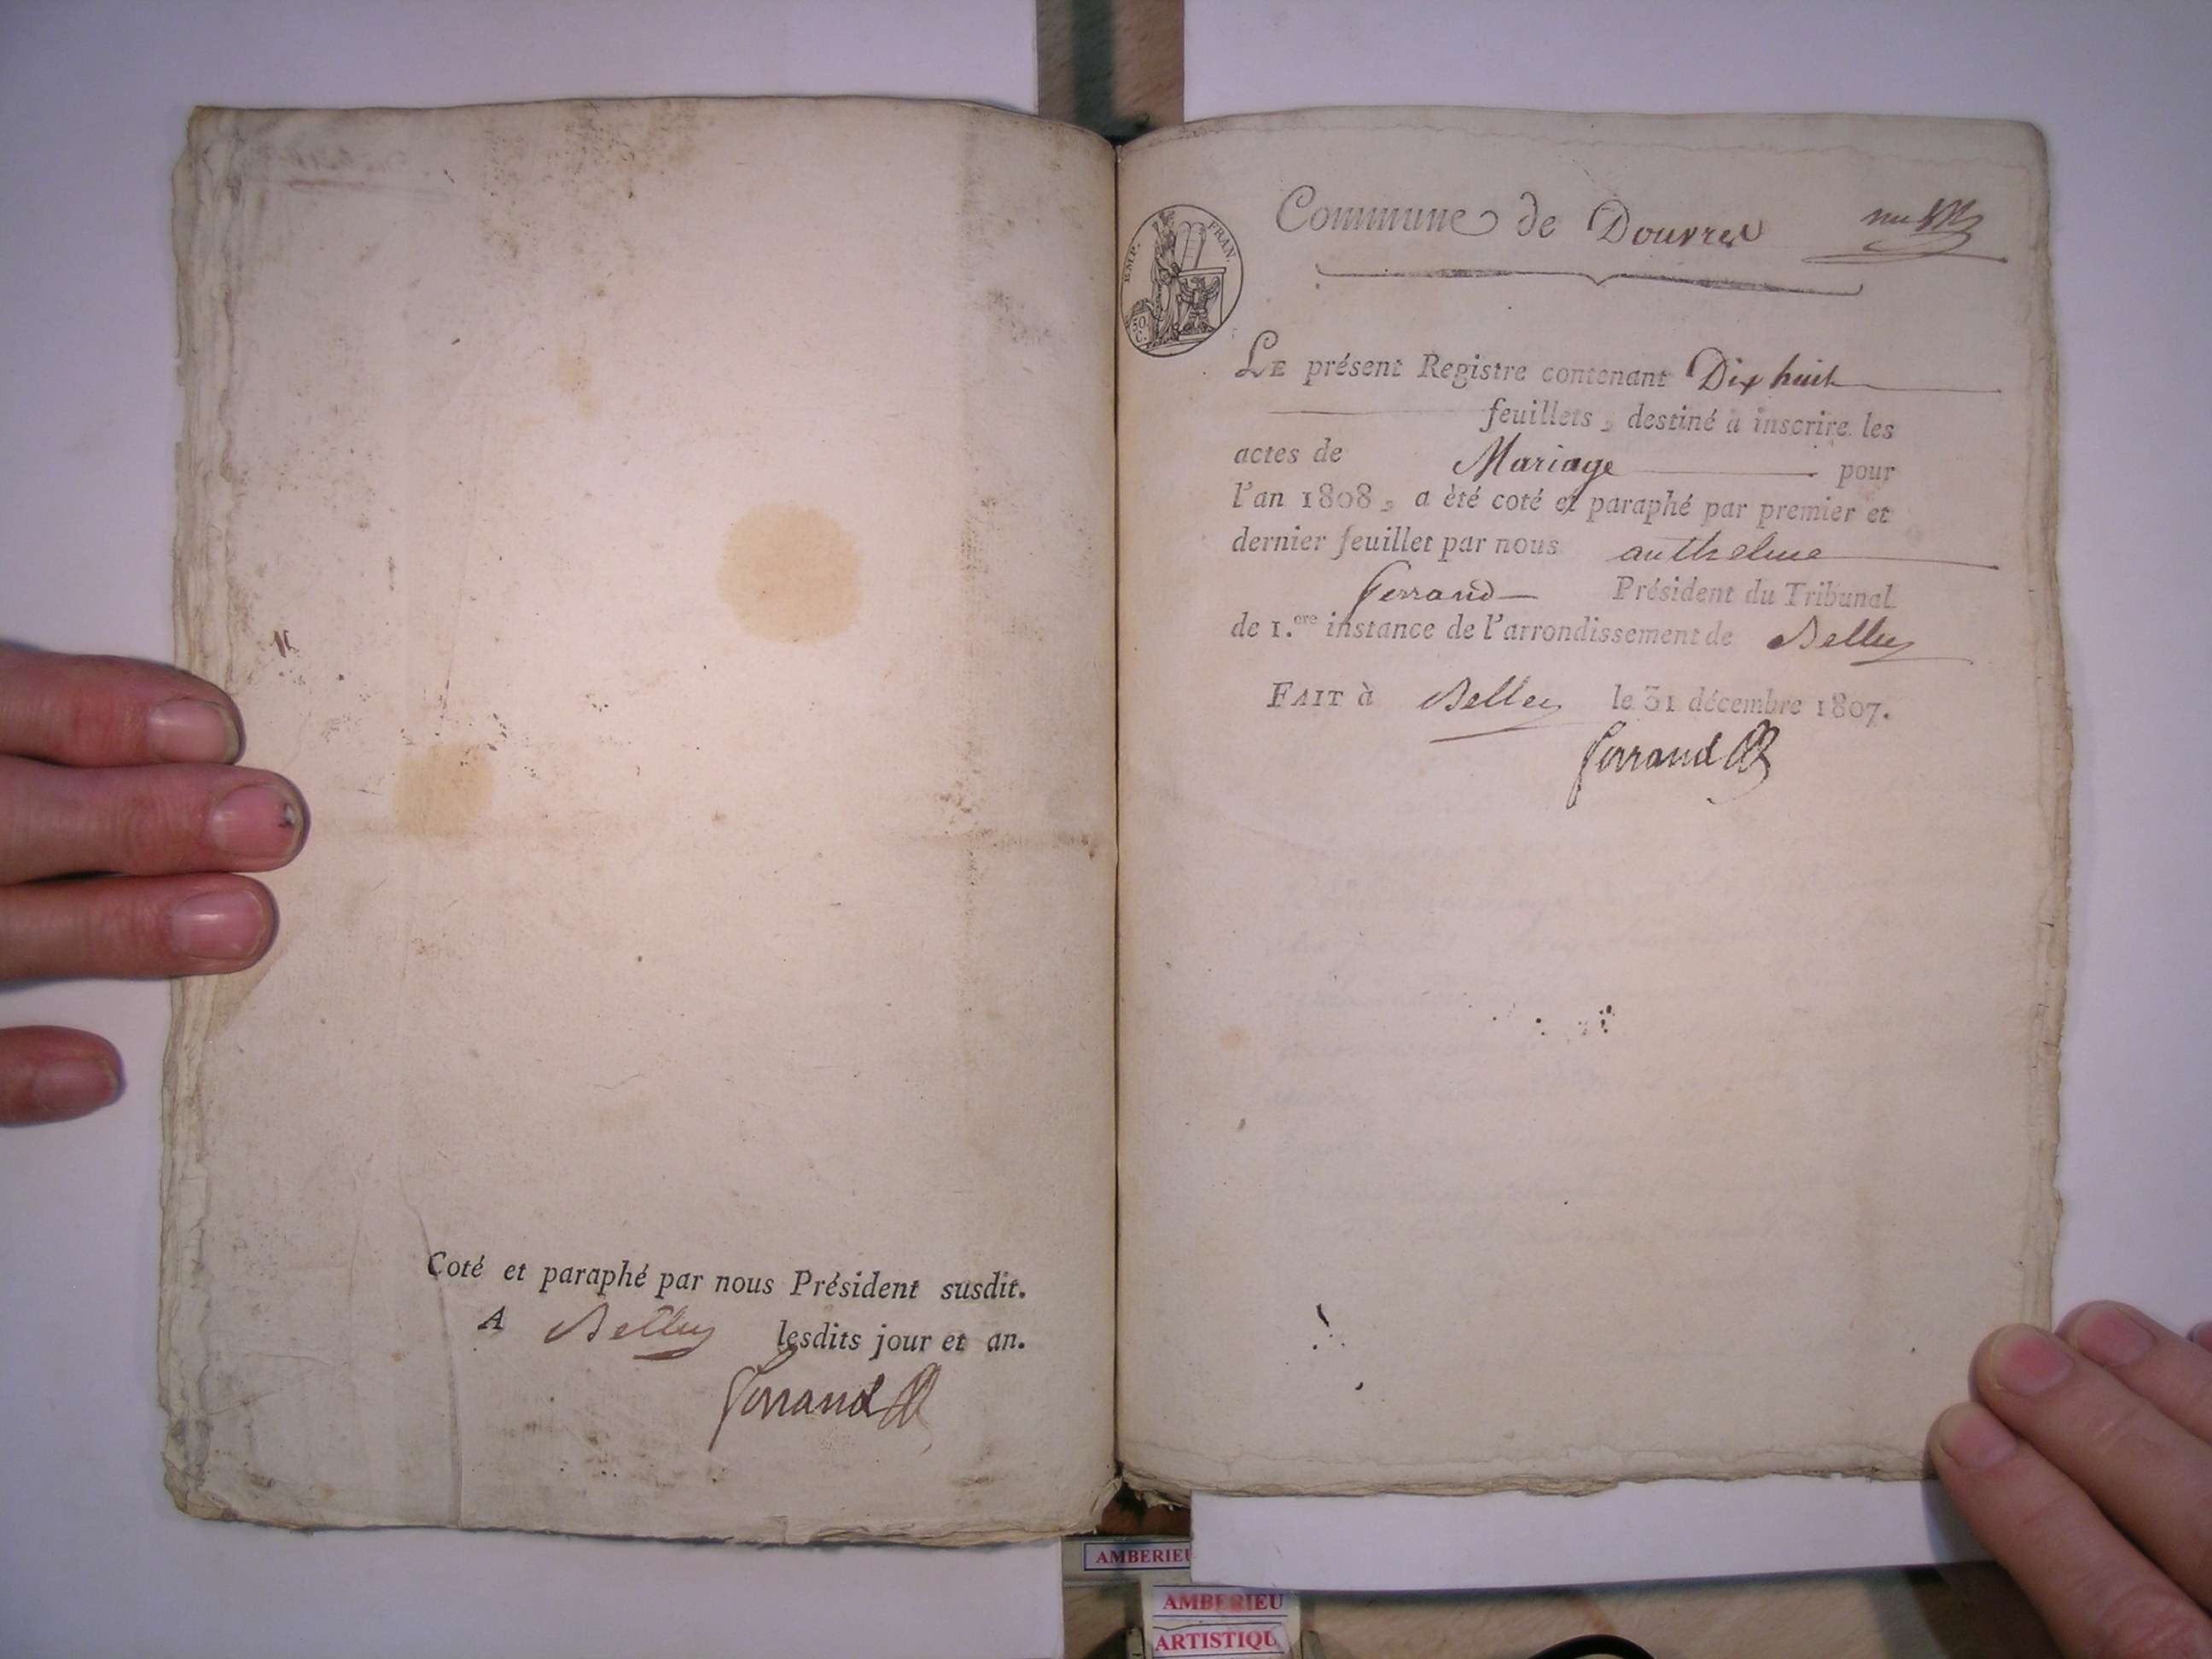 Coté et paraphé par nous Président susdit.
A Belley lesdits jour et an.
Ferrand
EMP. FRAN.
50 C.
Commune de Douvres
LE présent Registre contenant Dix huit
feuillets, destiné à inscrire les
actes de Mariage pour
l'an 1808, a èté coté et paraphé par premier et
dernier feuillet par nous anthelme
ferrand Président du Tribunal
de 1.ere instance de l'arrondissement de Belley
FAIT à Belley le 31 décembre 1807.
ferrand
AMBERIEU
AMBERIEU
ARTISTIQU